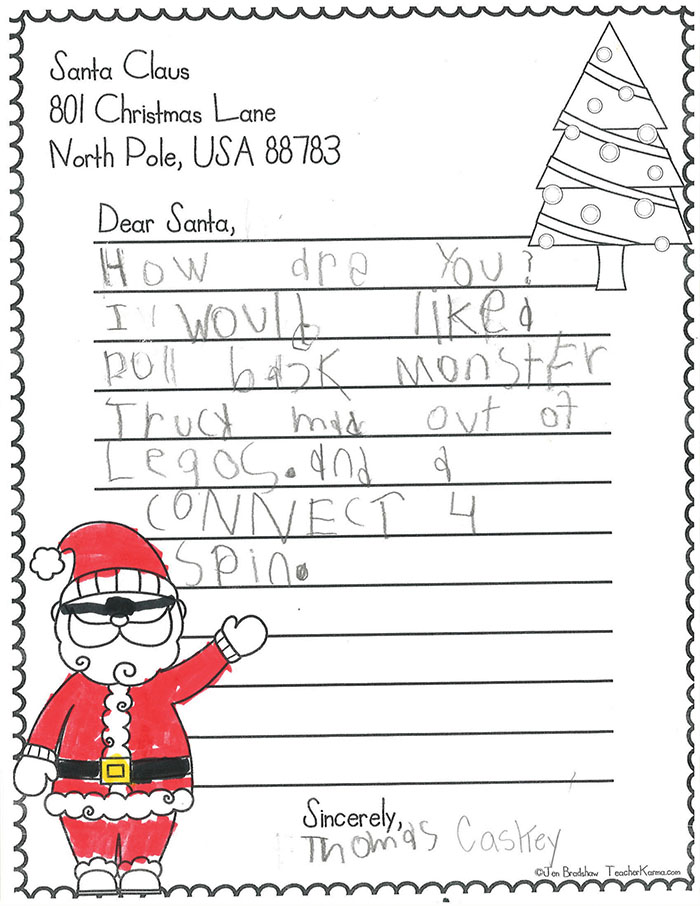 Santa Claus
801 Christmas Lane
North Pole, USA 88783
Dear Santa,
How are You?
I would liked
pull back monster
Truck made out of
Legos. and a
CONNECT 4
Spin.
Sincerely,
Thomas Caskey
©Jen Bradshaw TeacherKarma.com